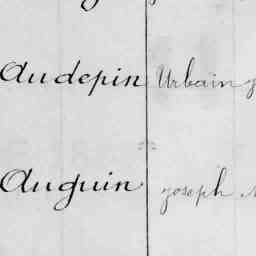 Audepin Urbain
Auguin joseph